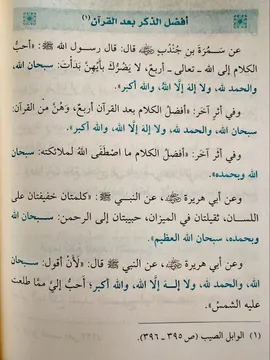 أفضل الذكر بعد القرآن (١)
عن سَمُرَةَ بنِ جُنْدَبٍ ﵁ قال: قال رسول الله ﷺ: «أحبُّ
الكلام إلى الله ـ تعالى ـ أربعٌ، لا يَضُرُّكَ بأيِّهِنَّ بَدَأتَ: سبحان الله،
والحمد لله، ولا إله إلَّا اللهُ، والله أكبر».
وفي أثرٍ آخَر: «أفضلُ الكلام بعد القرآن أربعٌ، وهُنَّ مِنَ القرآن:
سبحان الله، والحمد لله، ولا إله إلَّا الله، والله أكبر».
وفي أثر آخر: «أفضلُ الكلام ما اصْطَفَى اللهُ لملائكته: سبحان الله
وبحمده».
وعن أبي هريرة ﵁، عن النبي ﷺ: «كلمتان خفيفتان على
اللسان، ثقيلتان في الميزان، حبيبتان إلى الرحمن: سبحان الله
وبحمده، سبحان الله العظيم».
وعن أبي هريرة ﵁، عن النبي ﷺ قال: «لَأَنْ أقول: سبحان
الله، والحمد لله، ولا إله إلَّا الله، والله أكبر؛ أحبُّ إليَّ ممَّا طلعت
عليه الشمسُ».
(١) الوابل الصيب (ص ٣٩٥ ـ ٣٩٦).